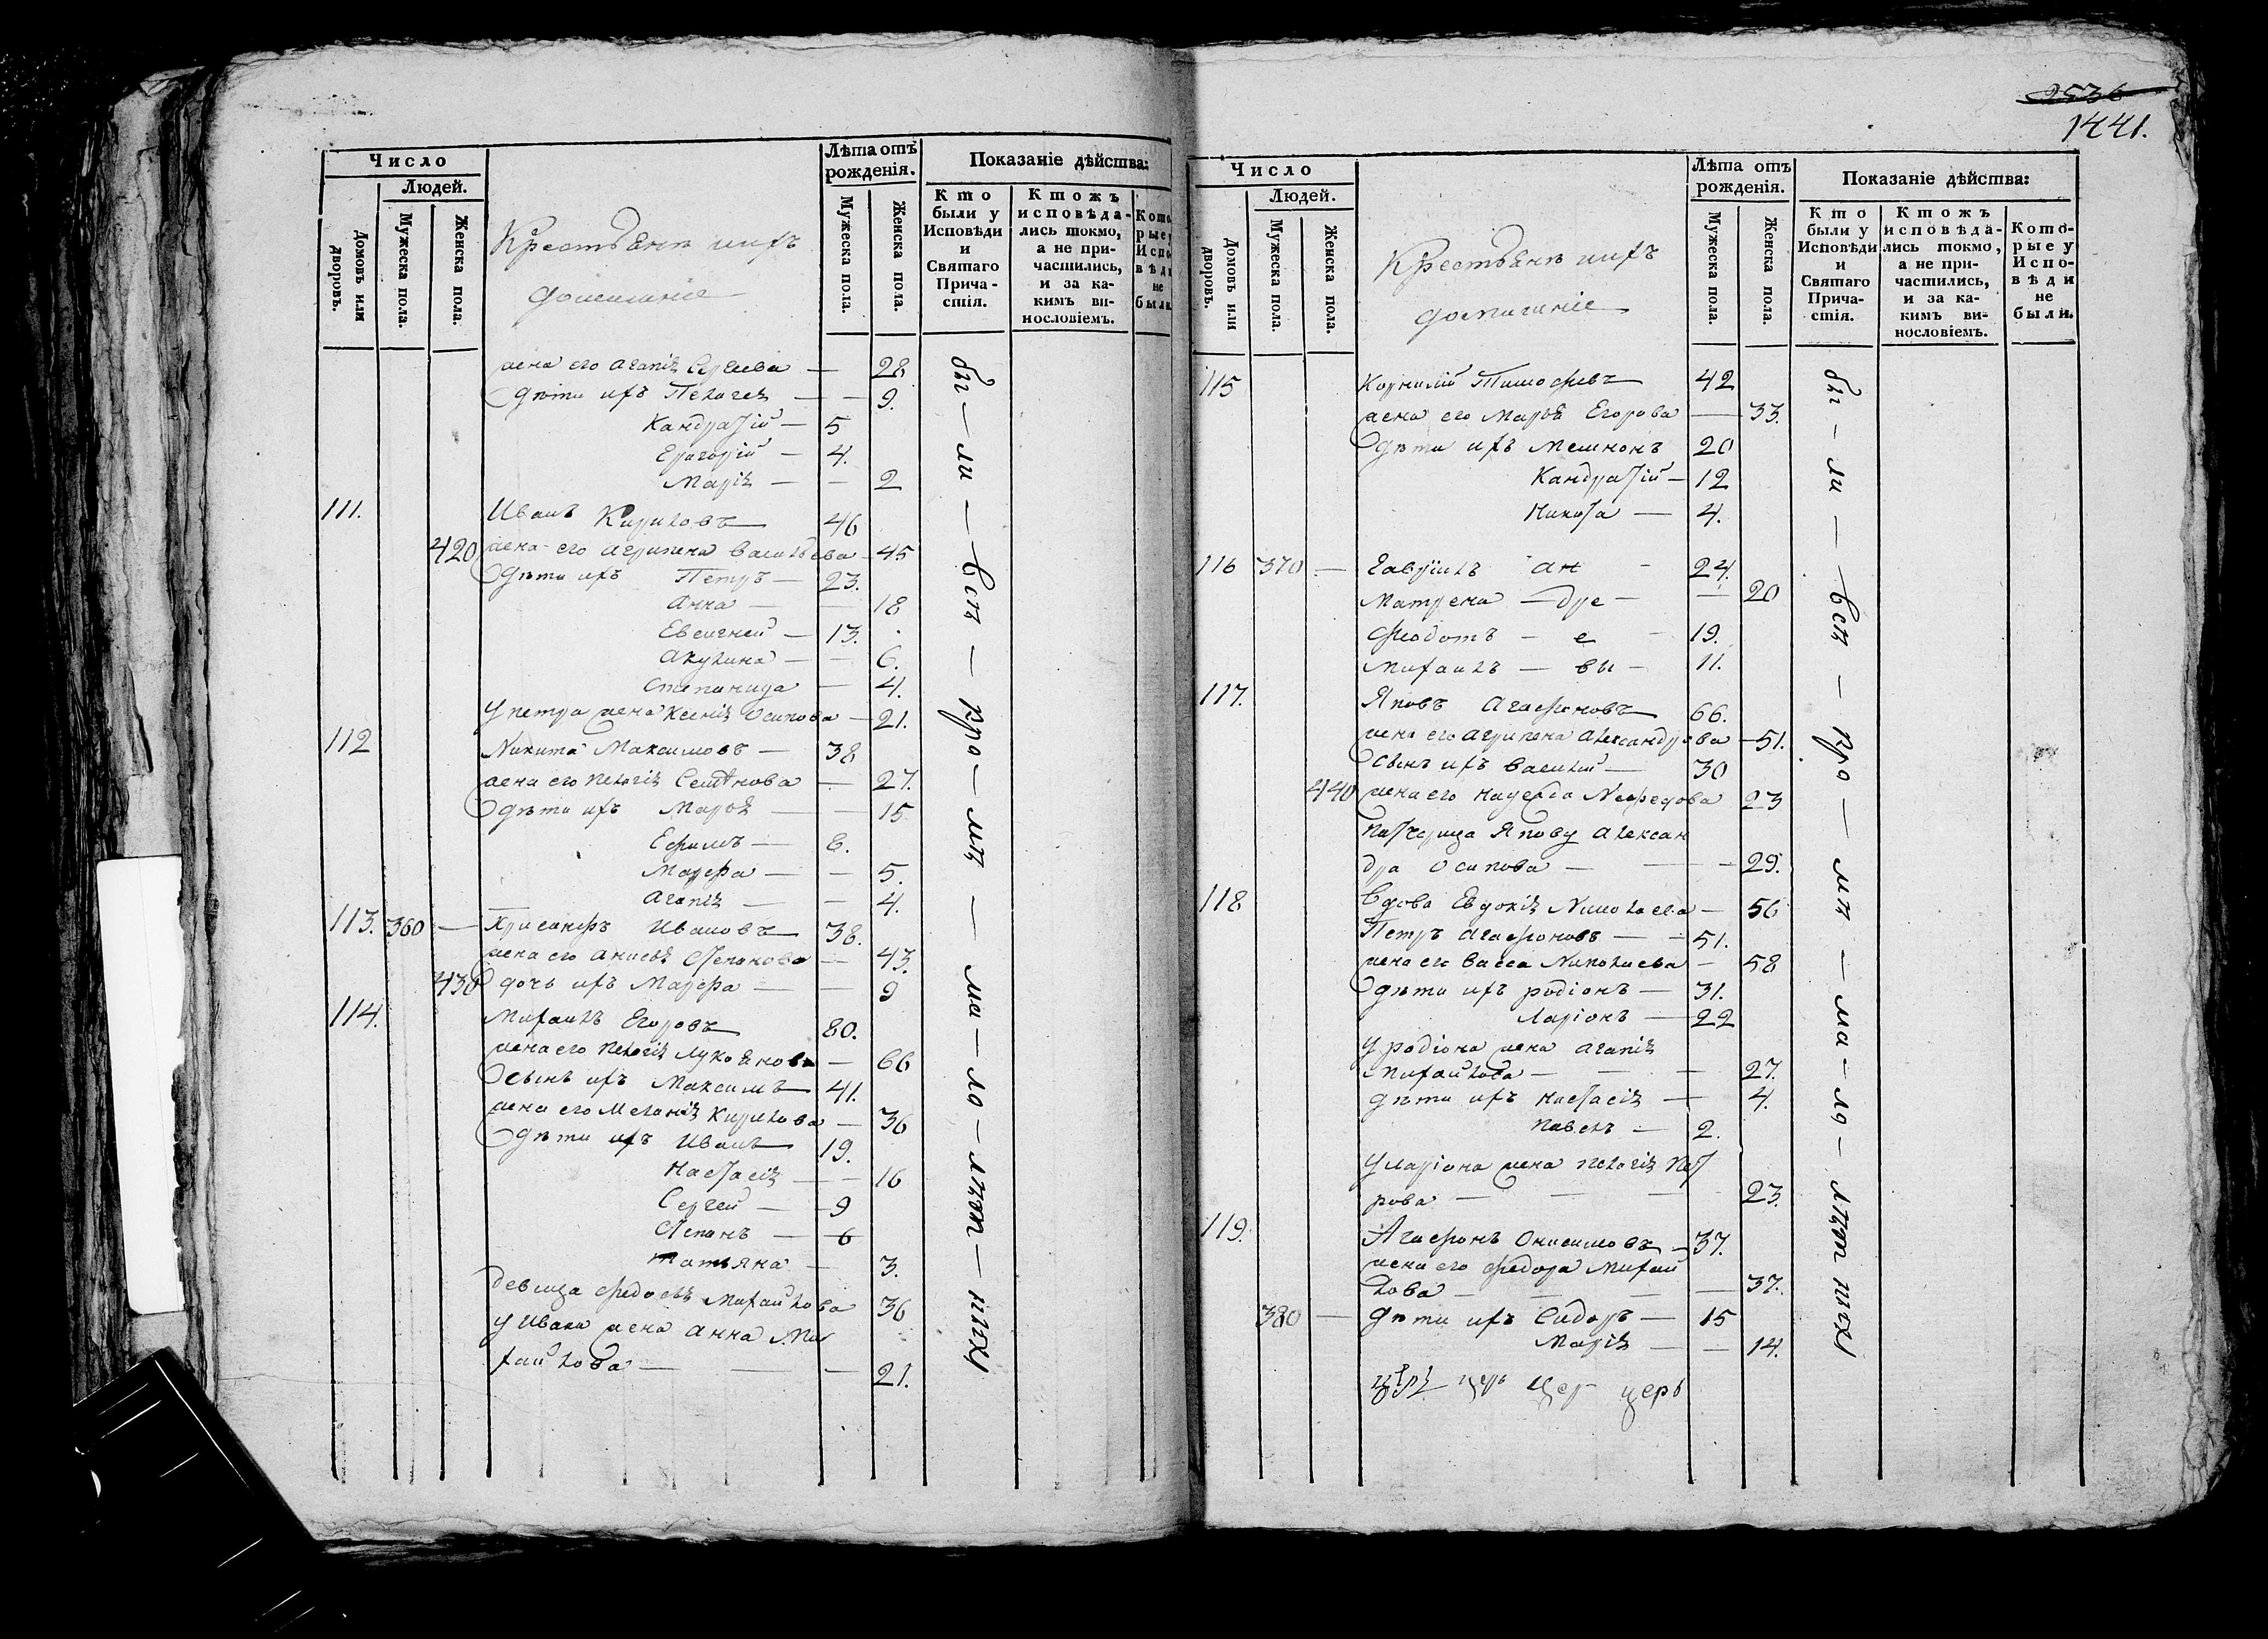 Число
Людей.
Домовъ или дворовъ.
Мужеска пола.
Женска пола.
Крестьянъ ихъ
Лѣта отъ рожденія.
Мужеска пола.
Женска пола.
Показаніе дѣйства:
Кто были у Исповѣди и Святаго Прича-стія.
Ктожъ исповѣда-лись токмо, а не при-частились, и за ка-кимъ ви-нословіемъ.
Кото рые у Испо вѣди не были
жена его Агапія Сергиева — 28
дѣти ихъ Пелагея — — 9.
Кандратій — 5
Григорій — 4.
Марія — — 2
111. Иванъ Кириловъ 46
420 жена его Агрипена Васильева — 45
дѣти ихъ Петръ — 23.
Анна — — 18
Евсигней — 13.
Акулина — — 6.
Степанида — 4.
у петра жена Ксенія Осипова — 21.
112 Никита Максимовъ — 38
жена его Пелагія Семѣнова — 27.
дѣти ихъ Марья — — 15
Ефимъ — 8.
Марфа — — 5.
Агапія — — 4.
113. 360 — Хрисанфъ Ивановъ 38.
жена его Анисья Степанова — 43.
430 дочь ихъ Марфа — — 9
114. Михаилъ Егоровъ 80.
жена его Пелагія Лукоянова — 66
сынъ ихъ Максимъ 41.
жена его Меланія Кирилова — 36
дѣти ихъ Иванъ 19.
Настасія — — 16
Сергей — 9
Степанъ — 6
Татьяна — 3.
девица Федосья Михайлова 36
у Ивана жена Анна Ми
хайлова — — — 21.
бы — ли — всѣ — кро — мѣ — ма — ло — лѣт — нихъ
2536
1441.
Число
Людей.
Домовъ или дворовъ.
Мужеска пола.
Женска пола.
Крестьянъ ихъ
Лѣта отъ рожденія.
Мужеска пола.
Женска пола.
Показаніе дѣйства:
Кто были у Исповѣди и Святаго Прича-стія.
Ктожъ исповѣда-лись токмо, а не при-частились, и за ка-кимъ ви-нословіемъ.
Кото-рые у Испо-вѣди не были.
115 Корнилій Тимофѣевъ 42
жена его Марья Егорова — 33.
дѣти ихъ 20
Кандратій — 12
Никита — 4.
116 370 — Гаврилъ ан — 24.
Матрена — дре — — 20
Фіодотъ — е — 19.
Михаилъ — вы — 11.
117. Яковъ Агафоновъ 66.
жена его Агрипена Александрова — 51.
сынъ ихъ Василій — 30
440 жена его Надежда Мефедова 23
Патчерица Якову Алексан
дра Осипова — — — 29.
118 Вдова Евдокія Николаева — 56
Петръ Агафоновъ — — 51.
жена его Васса Николаева — 58
дѣти ихъ родіонъ — 31.
Ларіонъ — 22
у родіона жена Агапія
Михайлова — — — 27.
дѣти ихъ Настасія — 4.
Павелъ — 2.
у ларіона жена Пелагія Пет
рова — — — 23.
119. Агафонъ Онисимовъ — 37.
жена его Федора Михай
лова — — — — 37.
380 — дѣти ихъ Сидоръ — 15
Марія — — 14.
церь
бы — ли — всѣ — кро — мѣ — ма — ло — лѣт нихъ